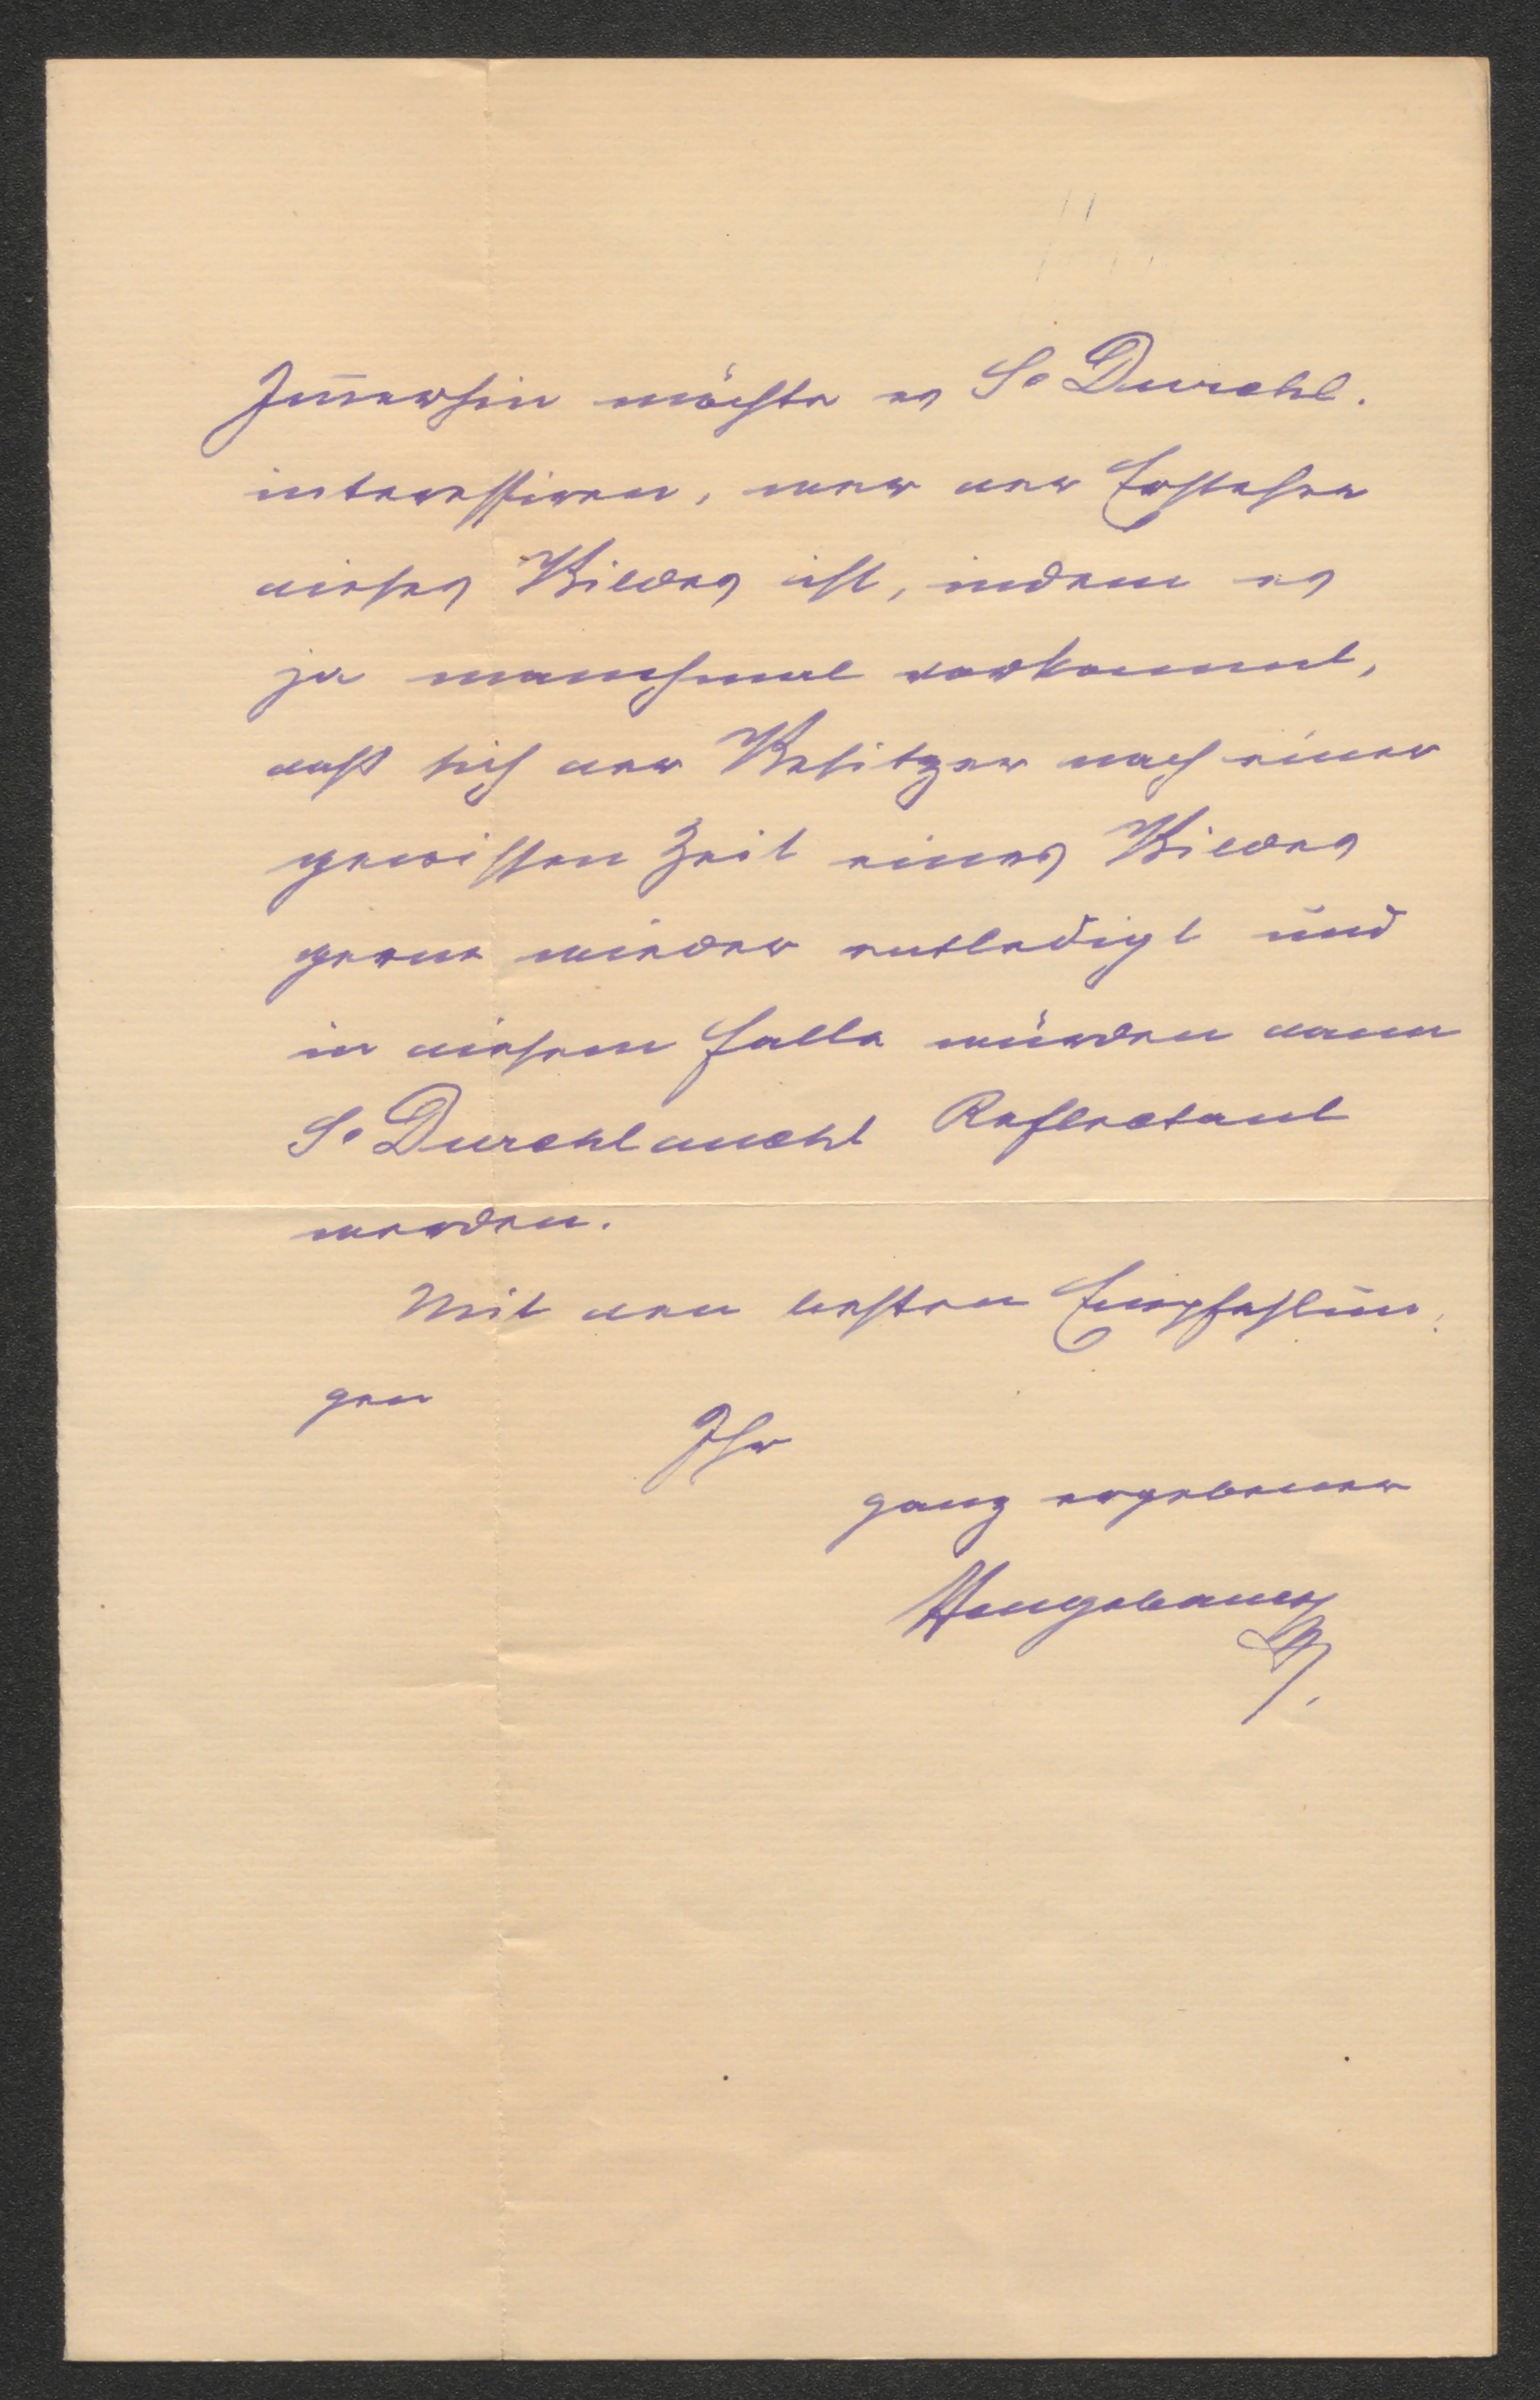 Im̄erhin möchte es Se Durchl.
interessiren, wer der Ersteher
dieses Bildes ist, indem es
ja manchmal vorkommt,
daß sich der Besitzer nach einer
gewissen Zeit eines Bildes
gerne wieder entledigt und
in diesem Falle würden dann
Se Durchlaucht Reflectant
werden.
Mit den besten Empfehlun-
gen
Ihr
ganz ergebener